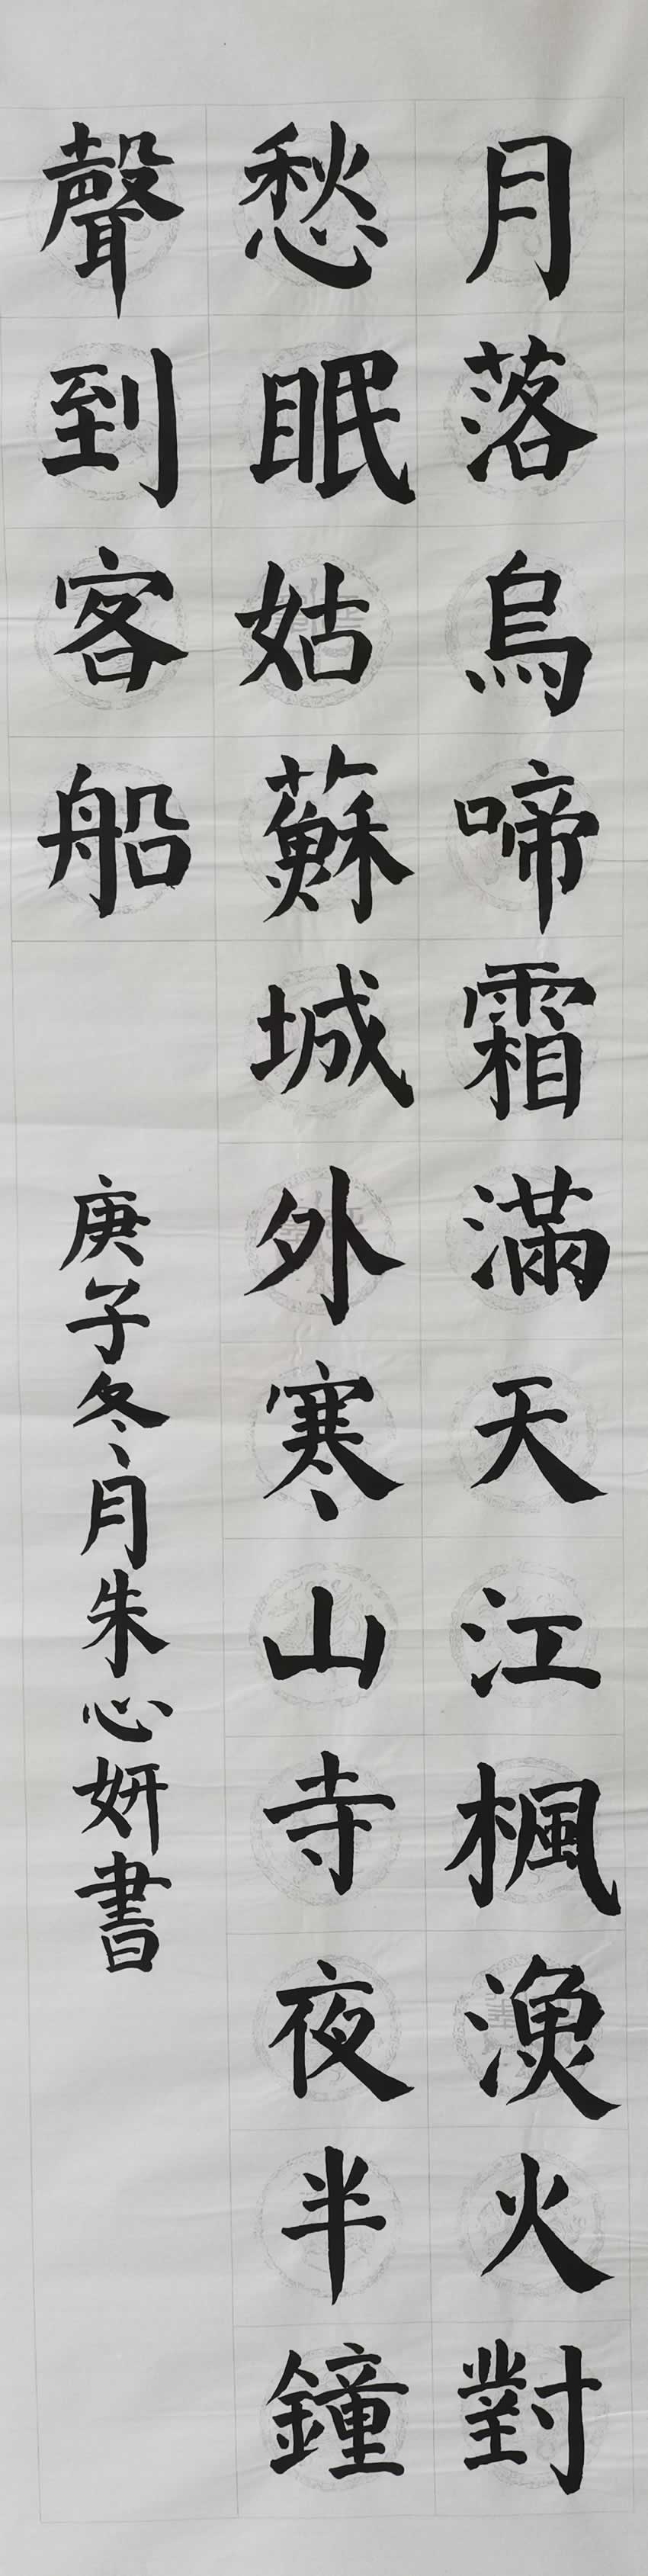 月落烏啼霜滿天江楓漁火對
愁眠姑蘇城外寒山寺夜半鐘
聲到客船
庚子冬月朱心妍書